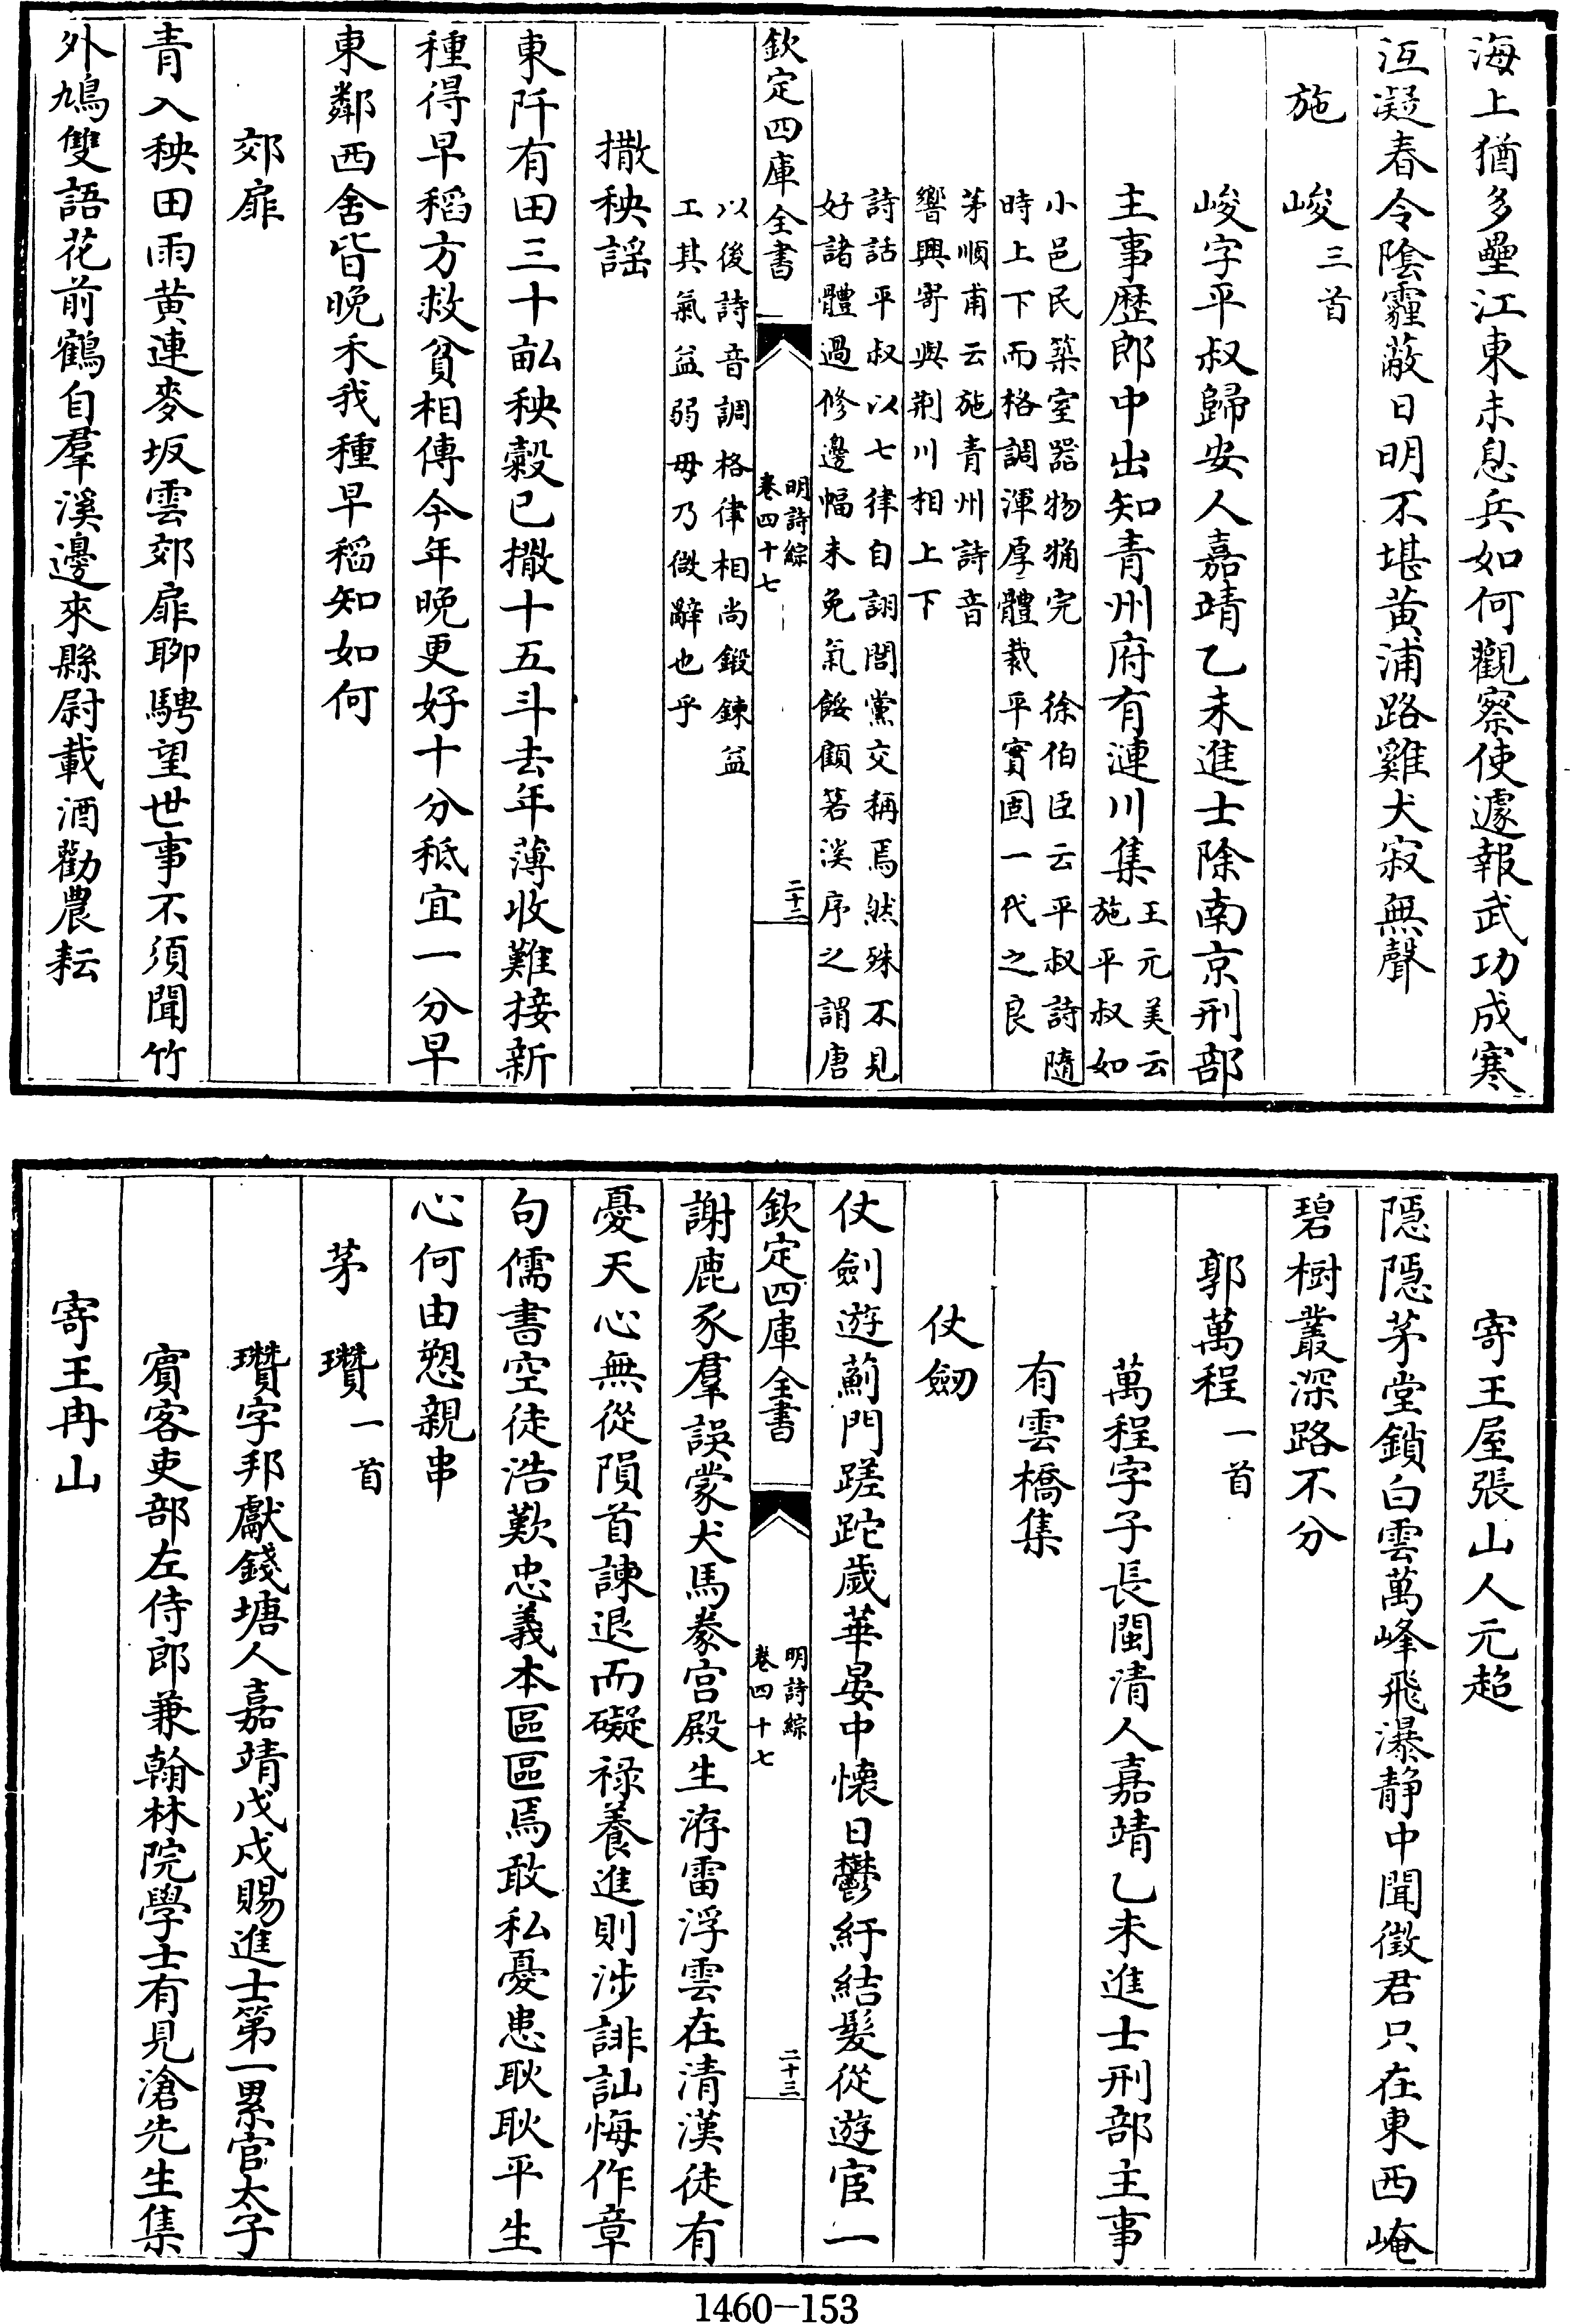 海上猶多壘江東未息兵如何觀察使遽報武功成寒
沍凝春令陰霾蔽日明不堪黃浦路雞犬寂無聲
施　峻三首
峻字平叔歸安人嘉靖乙未進士除南京刑部
主事歷郎中出知青州府有漣川集
王元美云
施平叔如
小邑民築室器物犕完　徐伯臣云平叔詩隨
時上下而格調渾厚體裁平實固一代之良
茅順甫云施青州詩音
響興寄與荆川相上下
詩話平叔以七律自詡閭黨交稱焉然殊不見
好諸體過修邊幅未免氣餒顧箬溪序之謂唐
欽定四庫全書
明詩綜
卷四十七
二十二
以後詩音調格律相尚鍛鍊益
工其氣益弱毋乃微辭也乎
撒秧謡
東阡有田三十畝秧穀已撒十五斗去年薄收難接新
種得早稻方救貧相傳今年晚更好十分秪宜一分早
東鄰西舍皆晚禾我種早稻知如何
郊扉
青入秧田雨黃連麥坂雲郊扉聊騁望世事不須聞竹
外鳩雙語花前鶴自羣溪邊來縣尉載酒勸農耘
寄王屋張山人元超
隱隱茅堂鎖白雲萬峰飛瀑静中聞徵君只在東西崦
碧樹叢深路不分
郭萬程一首
萬程字子長閩清人嘉靖乙未進士刑部主事
有雲橋集
仗劒
仗劍遊薊門蹉跎歲華晏中懷日鬱紆結髮從遊宦一
欽定四庫全書
明詩綜
卷四十七
二十三
謝鹿豕羣誤蒙犬馬豢宫殿生洊雷浮雲在清漢徒有
憂天心無從隕首諫退而礙祿養進則涉誹訕悔作章
句儒書空徒浩歎忠義本區區焉敢私憂患耿耿平生
心何由愬親串
茅　瓚一首
瓚字邦獻錢塘人嘉靖戊戌賜進士第一累官太子
賓客吏部左侍郎兼翰林院學士有見滄先生集
寄王冉山
1460—153